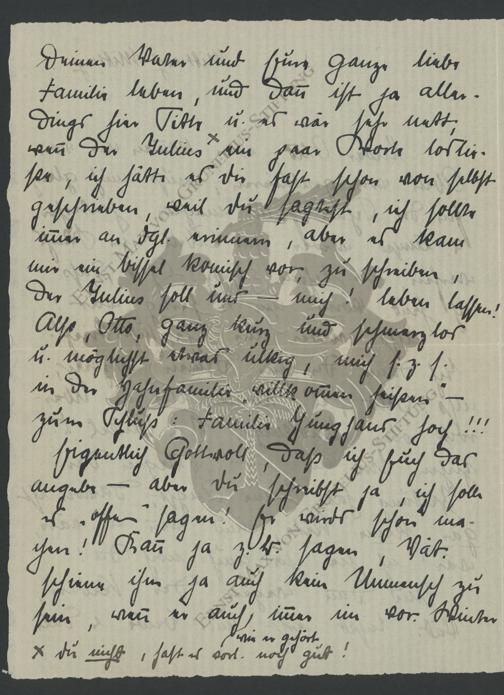 Deinen Vater und Eure ganze liebe
Familie leben, und dañ ist ja aller-
dings hier Sitte u. es wär sehr nett,
weñ der Julius x ein paar Worte losließe-
ße, ich hätt es dir fast schon von selbst
geschrieben, weil du sagtest, ich sollte
im̄er an dgl. erinnern, aber es kam
mir ein bissel komisch vor, zu schreiben,
der Julius soll uns — mich! leben lassen!
Also, Otto, ganz kurz und schmerzlos
u. möglichst etwas ulkig, mich s. z. s.
in der Familie „willkom̄en heißen" —
zum Schluß: Familie Junghans hoch!!!
Eigentlich , daß ich Euch das
angebe — aber du schreibst ja, ich solle
es „offen" sagen! Er wird's schon ma-
chen! Kañ ja z. B. sagen, Vat.
schiene ihm ja auch kein Unmensch zu
sein, weñ er auch, im̄er im vor. Winter
wie er gehört
x du nicht, hast es noch gut!